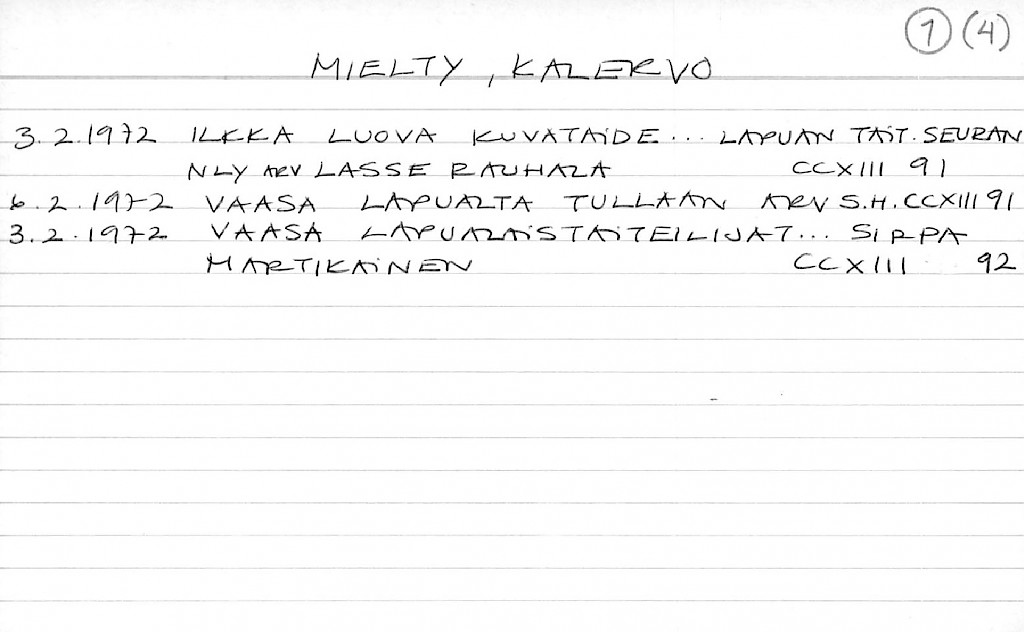 1 (4)
MIELTY, KALERVO
3.2.1972 ILKKA LUOVA KUVATAIDE... LAPUAN TAIT. SEURAN
NLY ARV LASSE RAUHALA CCXIII 91
6.2.1972 VAASA LAPUALTA TULLAAN ARV S.H. CCXIII 91
3.2.1972 VAASA LAPUALAISTAITEILIJAT... SIRPA
MARTIKAINEN CCXIII 92